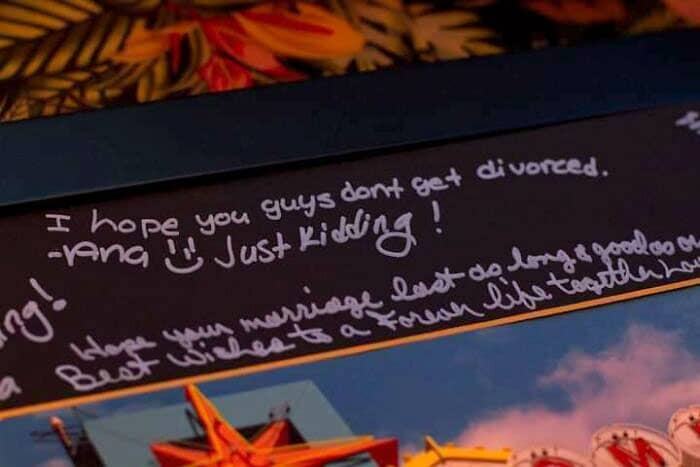 I hope you guys dont get divorced.
-Ana Just Kidding!
ng!
Hope your marriage last as long & good as
Best wishes to a Foreve life together